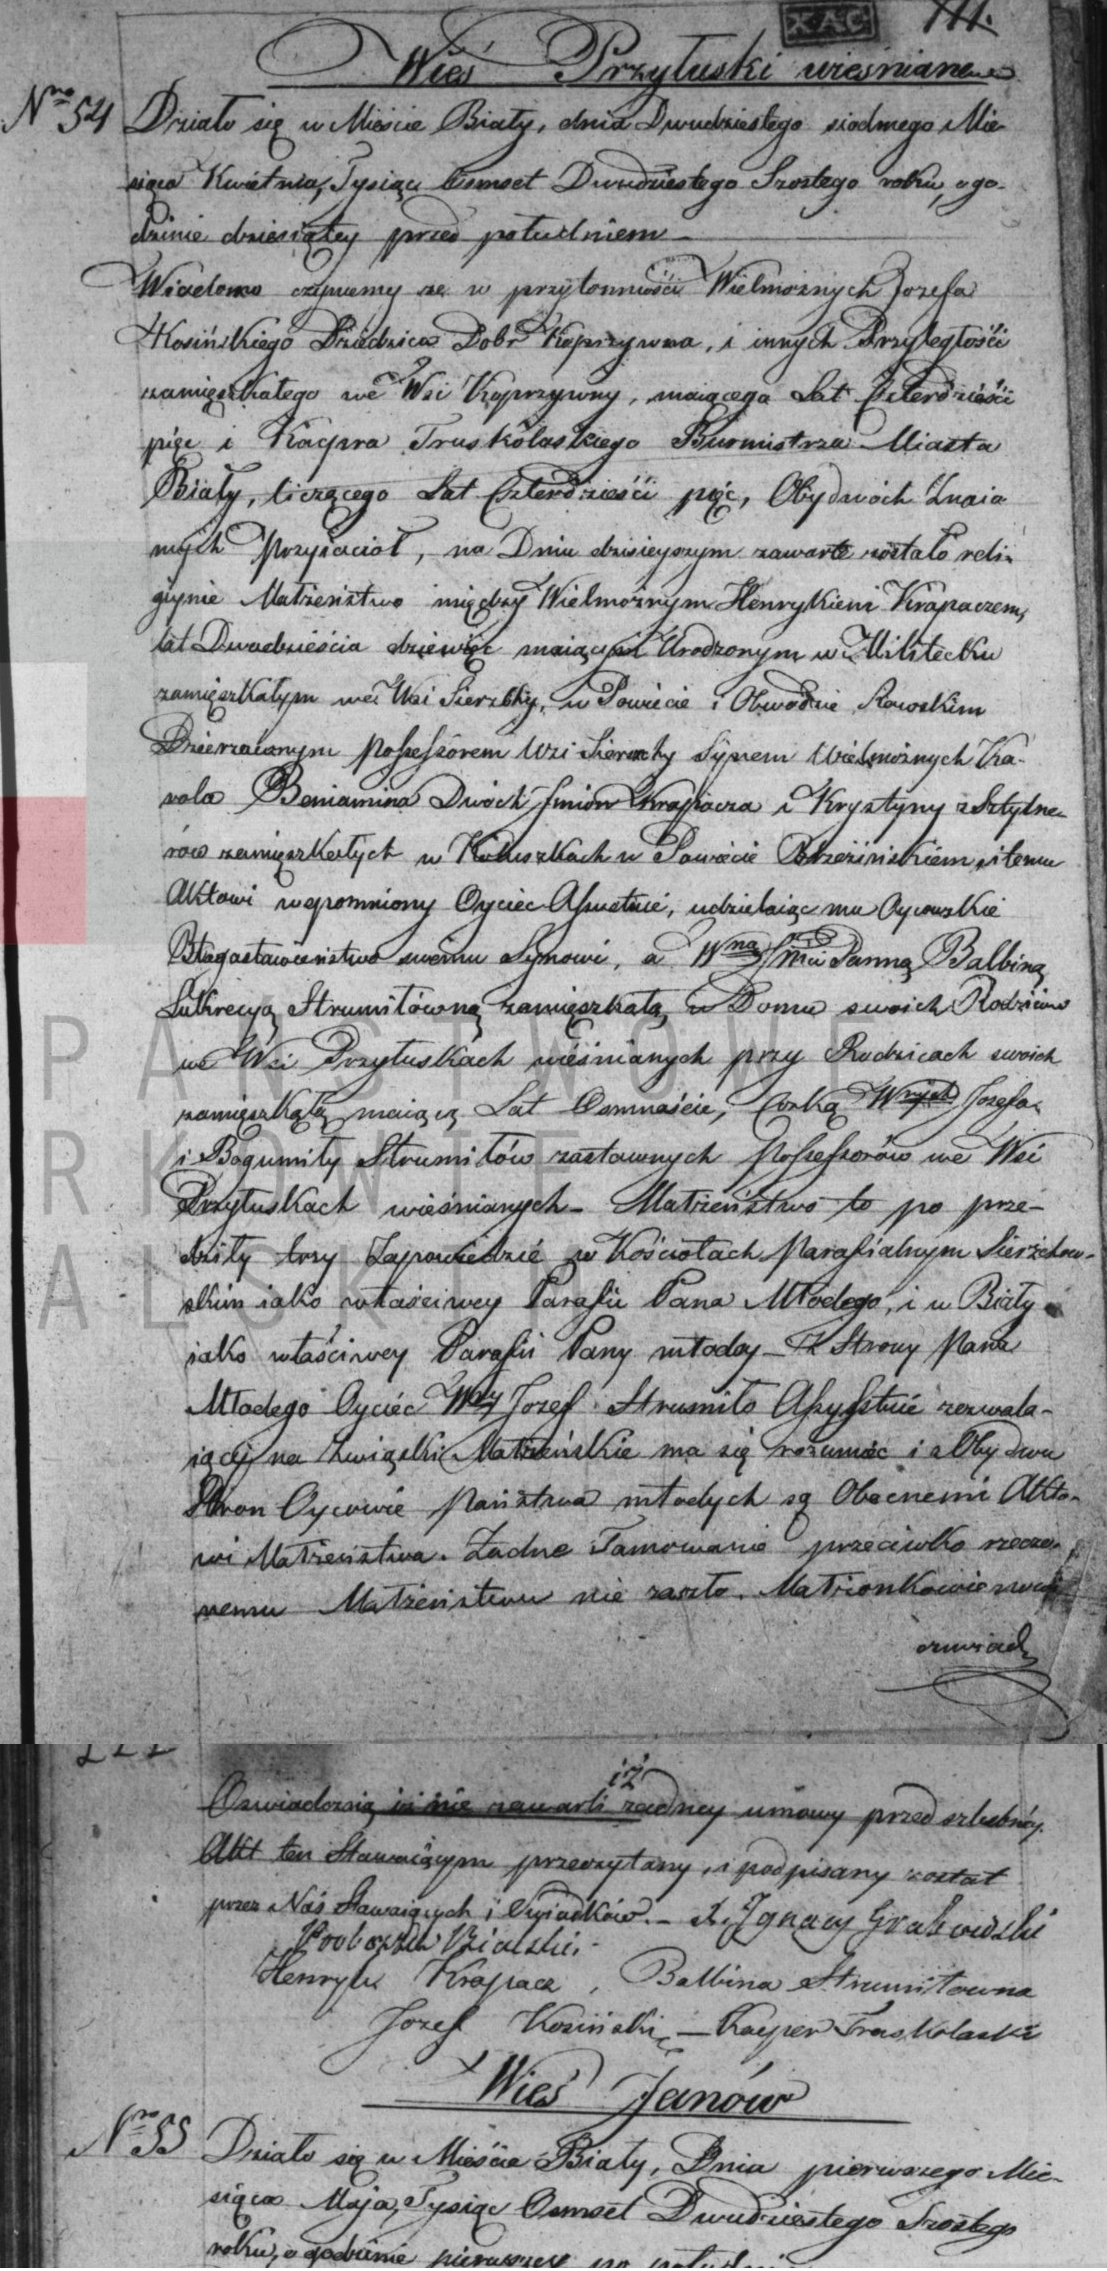 XAC 111.
Wieś Przyłuski wieśniane
Nro 54 Działo się w Mieście Biały, dnia Dwudziestego siodmego Mie-
siąca Kwietnia, Tysiąc Ośmset Dwudziestego Szostego roku, o go-
dzinie dziesiątey przed południem –
Wiadomo czyniemy że w przytomności Wielmożnych Jozefa
Kosińskiego Dziedzica Dobr Koprzywna, i innych Przyległości
zamięszkałego we Wsi Koprzywny, maiącego Lat Czterdzieści
pięc i Kacpra Truskolaskiego Burmistrza Miasta
Biały, liczącego Lat Czterdzieści pięc, Obydwóch Znaio
mych Przyiacioł, na Dniu dzisieyszym zawarte zostało reli-
giynie Małżeństwo między Wielmożnym Henrykiem Krapaczem,
lat Dwadzieścia dziewięc maiącym Urodzonym w
zamięszkałym we Wsi Sierzchy, w Powiecie i Obwodzie Rawskim
Dzierzawnym Possessorem Wsi Sierzchy Synem Wielmożnych Ka-
rola Beniamina Dwóch Jmion Krapacza i Krystyny z Sztydne-
rów zamięszkałych w Koluszkach w Powiecie Brzezińskiem, i temu
Aktowi wspomniony Oyciec Assystuie, udzielaiąc mu Oycowskie
Błogosławieństwo swemu Synowi, a Wną Jmci Panną Balbiną
Lukrecyą Strumiłówną zamięszkałą w Domu swoich Rodziców
we Wsi Przyłuskach wieśnianych przy Rodzicach swoich
zamięszkałą maiącą Lat Osmnaście, Corką Wnych Jozefa
i Bogumiły Strumiłów zastawnych Possessorów we Wsi
Przyłuskach wieśnianych – Małżeństwo to po prze-
dziły trzy Zapowiedzie w Kościołach Parafialnym Sierzchow-
skim iako właściwey Parafii Pana Młodego, i w Biały
iako właściwey Parafii Pany młody – Z Strony Pana
Młodego Oyciec Wny Jozef Strumiło Assystuie zezwala-
iącey na Zwiąski Małżeńskie ma się rozumiec i z Obydwu
Stron Oycowie Państwa młodych są Obecnemi Akto-
wi Małżeństwa. Zadne Tamowanie przeciwko rzeczo-
nemu Małżeństwu nie zaszło. Małżonkowie nowi
oswiad
Oswiadczaią iż nie zawarli iż żadney umowy przed szlubnéy.
Akt ten Stawaiącym przeczytany, i podpisany został
przez Nas Stawaiących i Swiadków. – X. Ignacy Grabowski
Proboszcz Bialski. –
Henryk Krapacz, Balbina Strumiłowna
Jozef Kosiński – Kacper Truskolaski
Wieś Janów
Nro 55 Działo się w Mieście Biały, Dnia pierwszego Mie-
siąca Maja, Tysiąc Osmset Dwudziestego Szostego
roku, o godzinie pierwszey po południu
PAŃSTWOWE
ARCHIWALSKIE